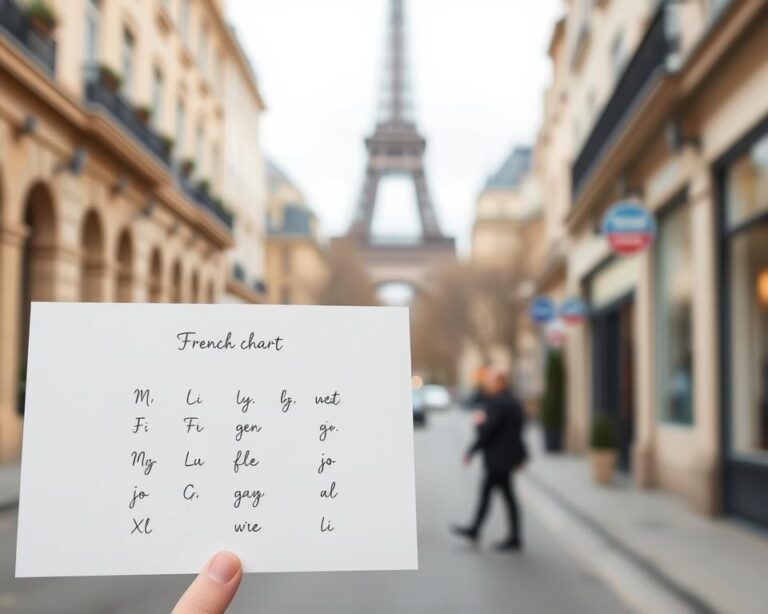 French chart
M, Li ly. ly. wet
Fi Fi gen go.
My Lu fle jo
jo G. gay al
Xl wie li